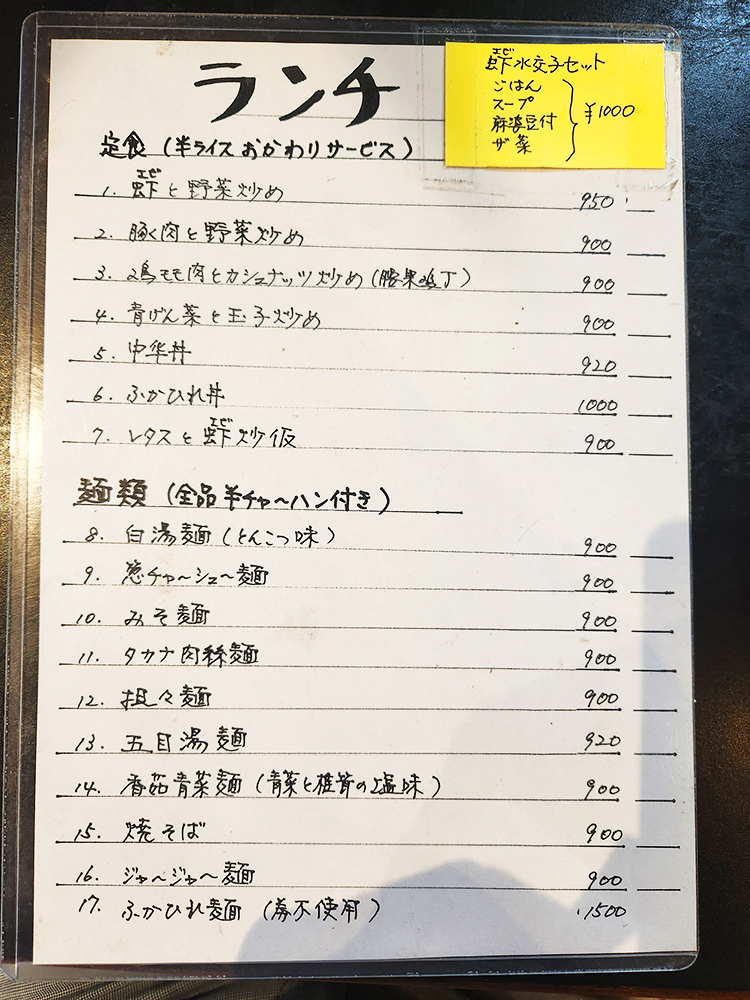 ランチ
エビ
虾水交子セット
ごはん
スープ
麻婆豆付
ザ菜
¥1000
定食（半ライスおかわりサービス）
エビ
1. 虾と野菜炒め 950
2. 豚く肉と野菜炒め 900
3. 鶏モモ肉とカシュナッツ炒め（腰果鸡丁） 900
4. 青げん菜と玉子炒め 900
5. 中华丼 920
6. ふかひれ丼 1000
エビ
7. レタスと虾炒仮 900
麺類（全品半チャ〜ハン付き）
8. 白湯麺（とんこつ味） 900
9. 葱チャ〜シュ〜麺 900
10. みそ麺 900
11. タカナ肉絲麺 900
12. 担々麺 900
13. 五目湯麺 920
14. 香茹青菜麺（青菜と椎茸の塩味） 900
15. 焼そば 900
16. ジャ〜ジャ〜麺 900
17. ふかひれ麺（券不使用） 1500